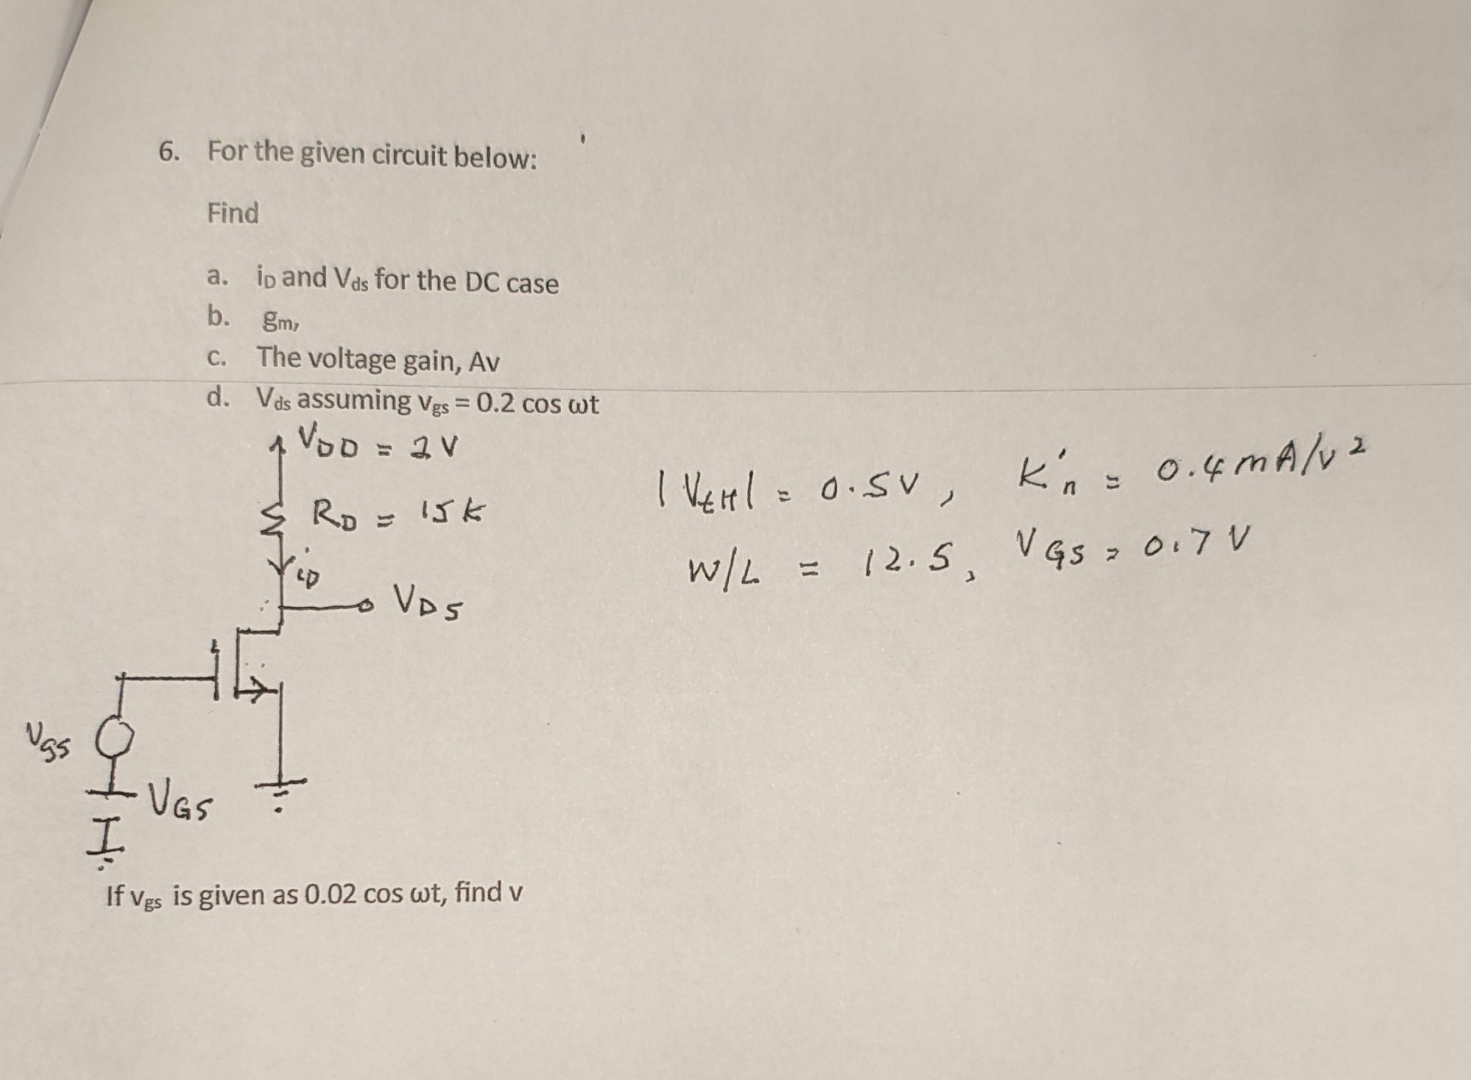 6. For the given circuit below:
Find
a. iD and Vds for the DC case
b. gm,
c. The voltage gain, Av
d. Vds assuming vgs = 0.2 cos ωt
VDD = 2V
RD = 15k
iD
VDS
|VtH| = 0.5V, K'n = 0.4mA/V²
W/L = 12.5, VGS = 0.7V
Vgs
VGS
If vgs is given as 0.02 cos ωt, find v